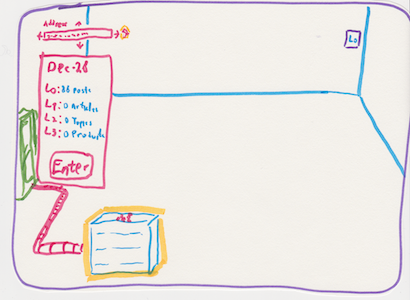 Address
L0
Dec-28
L0:36 Posts
L1:0 Articles
L2:0 Topics
L3:0 Products
Enter